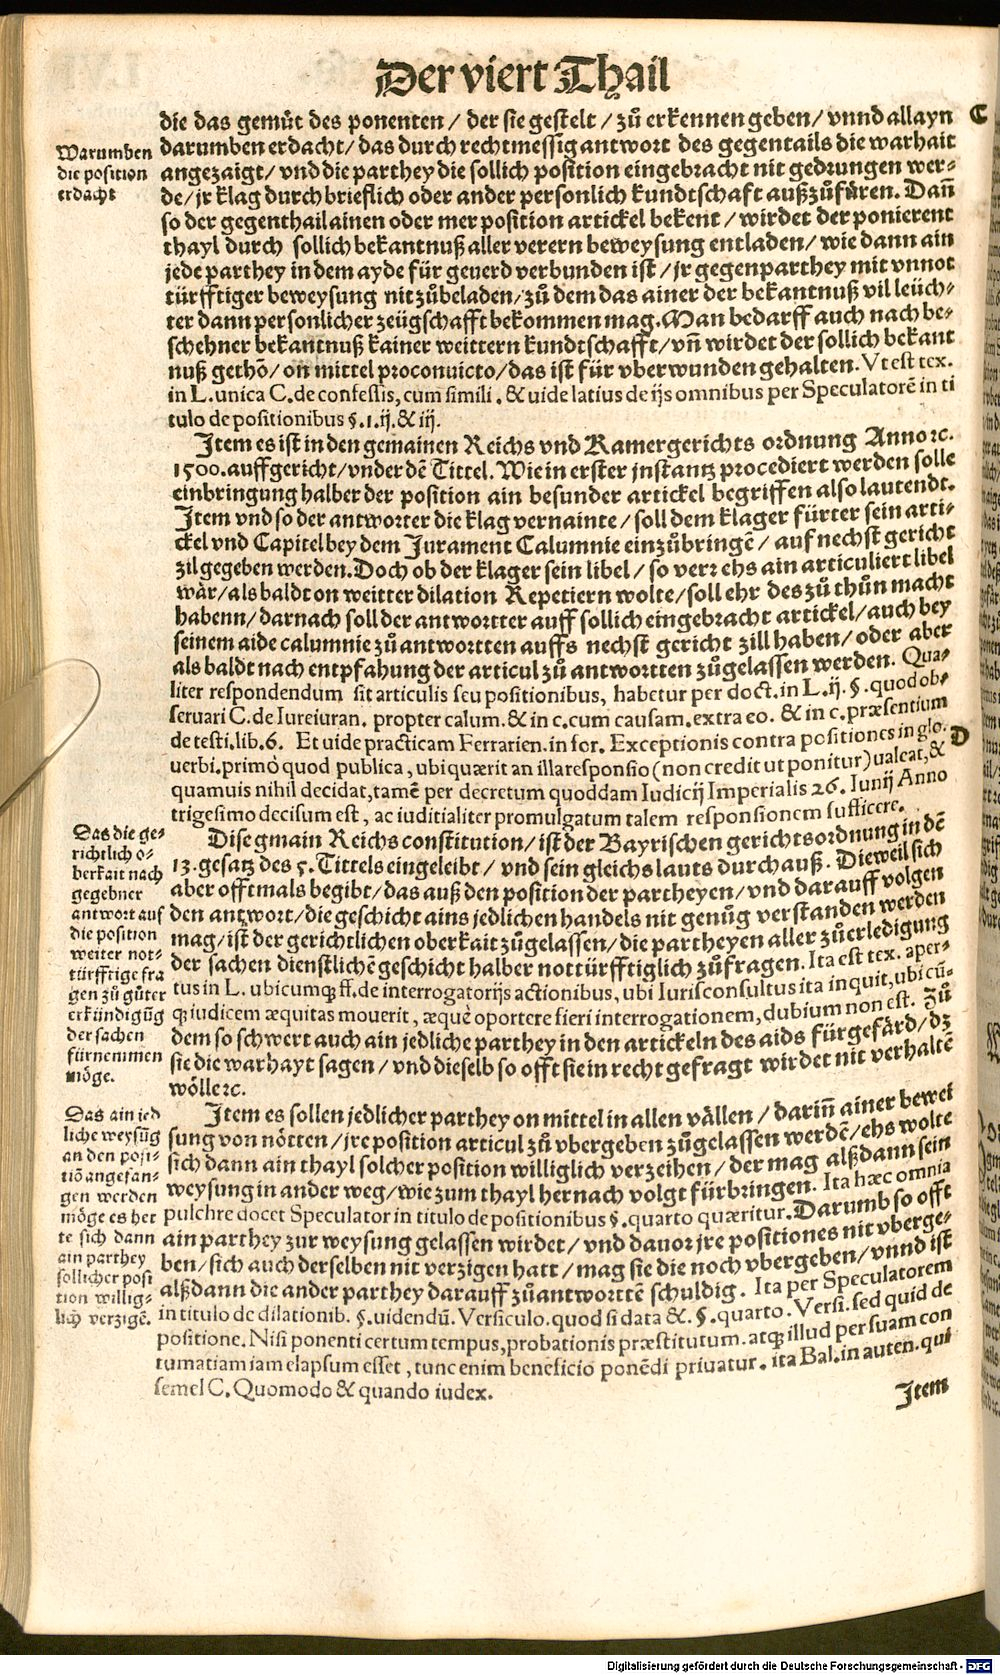 Der viert Thail
die das gemüt des ponenten / der sie gestelt / zů erkennen geben / vnnd allayn
C
Warumben
die position
erdacht
darumben erdacht / das durch rechtmessig antwort des gegentails die warhait
angezaigt / vnd die parthey die sollich position eingebracht nit gedrungen wer-
de / jr klag durch brieflich oder ander personlich kundtschafft außzůfüren. Dañ
so der gegenthail ainen oder mer position artickel bekent / wirdet der ponierent
thayl durch sollich bekantnuß aller verern beweysung entladen / wie dann ain
jede parthey in dem ayde für geuerd verbunden ist / jr gegenparthey mit vnnot
türfftiger beweysung nit zůbeladen / zů dem das ainer der bekantnuß vil leüch-
ter dann personlicher zeügschafft bekommen mag. Man bedarff auch nach be-
schehner bekantnuß kainer weittern kundtschafft / vñ wirdet der sollich bekant
nuß gethõ / on mittel pro conuicto / das ist für vberwunden gehalten. Vt est tex.
in L. unica C. de confessis, cum simili. & uide latius de ijs omnibus per Speculatorẽ in ti
tulo de positionibus §. 1. ij. & iij.
Item es ist in den gemainen Reichs vnd Kamergerichts ordnung Anno ꝛc.
1500. auffgericht / vnder dẽ Tittel. Wie in erster jnstantz procediert werden solle
einbringung halber der position ain besunder artickel begriffen also lautendt.
Item vnd so der antworter die klag vernainte / soll dem klager fürter sein arti-
ckel vnd Capitel bey dem Jurament Calumnie einzůbringẽ / auf nechst gericht
zil gegeben werden. Doch ob der klager sein libel / so verꝛ ehs ain articuliert libel
wår / als baldt on weitter dilation Repetiern wolte / soll ehr des zů thůn macht
habenn / darnach soll der antwortter auff sollich eingebracht artickel / auch bey
seinem aide calumnie zů antwortten auffs nechst gericht zill haben / oder aber
als baldt nach entpfahung der articul zů antwortten zůgelassen werden. Qua-
liter respondendum sit articulis seu positionibus, habetur per doct. in L. ij. §. quod ob-
seruari C. de Iureiuran. propter calum. & in c. cum causam. extra eo. & in c. præsentium
de testi. lib. 6. Et uide practicam Ferrarien. in for. Exceptionis contra positiones in glo.
D
verbi. primò quod publica, ubi quærit an illa responsio (non credit ut ponitur) ualeat, &
quamuis nihil decidat, tamẽ per decretum quoddam Iudicij Imperialis 26. Iunij Anno
trigesimo decisum est, ac iuditialiter promulgatum talem responsionem sufficere.
Das die ge-
richtlich o-
berkait nach
gegebner
antwort auf
die position
weiter not-
türfftige fra
gen zů gůter
erkündigũg
der sachen
fürnemmen
möge.
Dise gmain Reichs constitution / ist der Bayrischen gerichtsordnung in dẽ
13. gesatz des 5. Tittels eingeleibt / vnd sein gleichs lauts durchauß. Dieweil sich
aber offtmals begibt / das auß den position der partheyen / vnd darauff volgen
den antwort / die geschicht ains jedlichen handels nit genůg verstanden werden
mag / ist der gerichtlichen oberkait zůgelassen / die partheyen aller zůerledigung
der sachen dienstlichẽ geschicht halber nottürfftiglich zůfragen. Ita est tex. aper-
tus in L. ubicumqꝫ ff. de interrogatorijs actionibus, ubi Iurisconsultus ita inquit, ubi cũ-
qꝫ iudicem æquitas mouerit, æquè oportere fieri interrogationem, dubium non est. Zů
dem so schwert auch ain jedliche parthey in den artickeln des aids für gefård / dz
sie die warhayt sagen / vnd dieselb so offt sie in recht gefragt wirdet nit verhaltẽ
wölle ꝛc.
Das ain jed
liche weysũg
an den posi-
tiõ angefan-
gen werden
möge es het
te sich dann
ain parthey
sollicher posi
tion willig-
lich verzigẽ.
Item es sollen jedlicher parthey on mittel in allen vällen / dariñ ainer bewei
sung von nötten / jre position articul zů vbergeben zůgelassen werdẽ / ehs wolte
sich dann ain thayl solcher position williglich verzeihen / der mag alßdann sein
weysung in ander weg / wie zum thayl hernach volgt fürbringen. Ita hæc omnia
pulchre docet Speculator in titulo de positionibus §. quarto quæritur. Darumb so offt
ain parthey zur weysung gelassen wirdet / vnd dauor jre positiones nit vberge-
ben / sich auch derselben nit verzigen hatt / mag sie die noch vbergeben / vnnd ist
alßdann die ander parthey darauff zů antworttẽ schuldig. Ita per Speculatorem
in titulo de dilationib. §. uidendũ. Versiculo. quod si data &. §. quarto. Versi. sed quid de
positione. Nisi ponenti certum tempus, probationis præstitutum. atqꝫ illud per suam con
tumatiam iam elapsum esset, tunc enim beneficio ponẽdi priuatur. ita Bal. in auten. qui
semel C. Quomodo & quando iudex.
Item
Digitalisierung gefördert durch die Deutsche Forschungsgemeinschaft - DFG